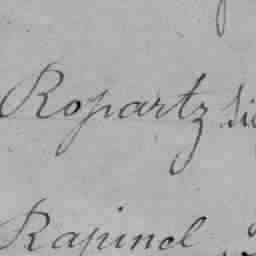 Ropartz
Rapinel